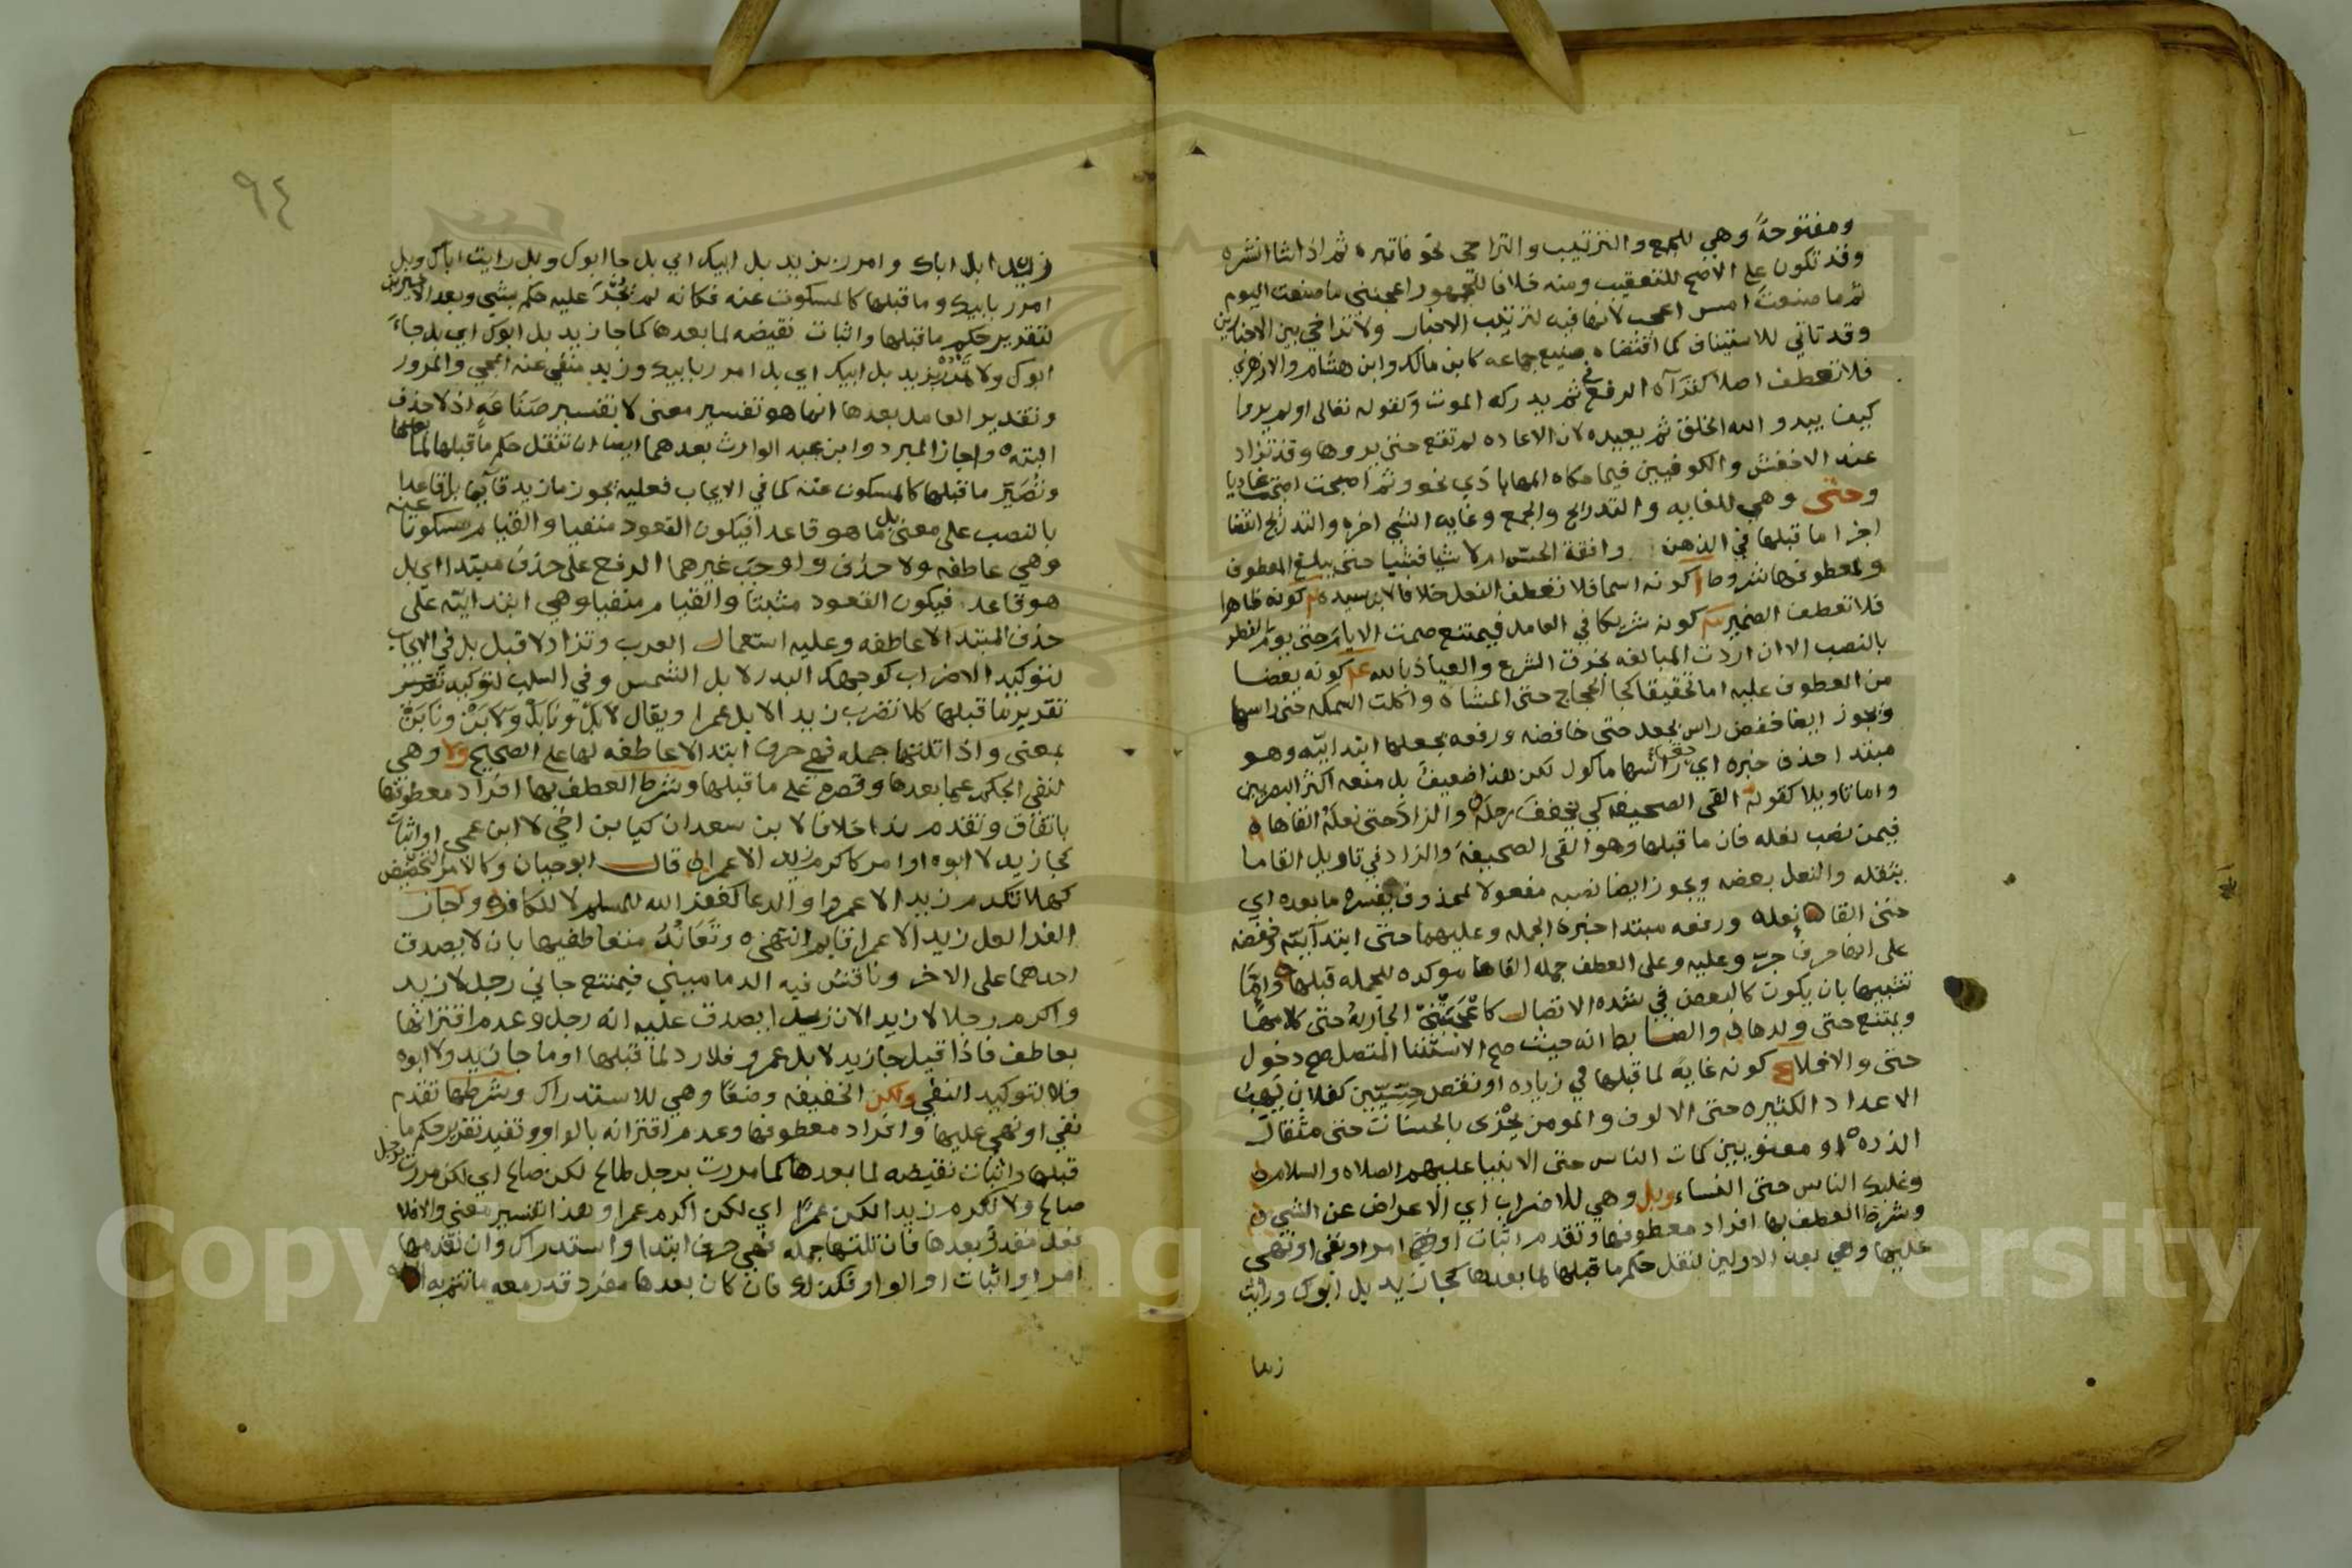 ومفتوحة وهي للجمع والترتيب والتراخي نحو فاقبره ثم اذا شا انشره
وقد تكون على الاصح للتعقيب ومنه خلافا للجمهور اعجبني ما صنعت اليوم
ثم ما صنعت امس اعجب لانها فيه لترتيب الاخبار ولا تراخي بين الاخبارين
وقد تاتي للاستيناف كما اقتضاه صنيع جماعه كابن مالك وابن هشام والازهري
فلا تعطف اصلا كقرآة الرفع في ثم يدركه الموت وكقوله تعالى اولم يروا
كيف يبدو الله الخلق ثم يعيده لان الاعاده لم تقع حتى يروها وقد تزاد
عند الاخفش والكوفيين فيما حكاه المهاباذي نحو وثم اصبحت اصبحت غاديا
وحتى وهي للغايه والتدريج والجمع وغاية الشي اخره والتدريج انقضا
اجزا ما قبلها في الذهن وافقة الحس ام لا شيا فشيا حتى يبلغ المعطوف
ولمعطوفها شروط كونه اسما فلا تعطف الفعل خلافا لابن سيده كونه ظاهرا
فلا تعطف الضمير كونه شريكا في العامل فيمتنع صمت الايام حتى يوم الفطر
بالنصب الا ان اردت المبالغه بخرق الشرع والعياذ بالله كونه بعضا
من المعطوف عليه اما تحقيقا كجا الحجاج حتى المشاة واكلت السمكه حتى راسها
ويجوز ايضا خفض راس بجعل حتى خافضه ورفعه بجعلها ابتدائيه وهو
مبتدا حذف خبره اي راسها ماكول لكن هذا ضعيف بل منعه اكثر البصريين
واما تاويلا كقوله القى الصحيفه كي يخفف رحله والزاد حتى نعله القاها
فيمن نصب نعله فان ما قبلها وهو القى الصحيفة والزاد في تاويل القا ما
يثقله والنعل بعضه ويجوز ايضا نصبه مفعولا لمحذوف يفسره ما بعده اي
حتى القا نعله ورفعه مبتدا خبره الجمله وعليهما حتى ابتدآئيه وخفضه
على انها حرف جر وعليه وعلى العطف جمله القاها موكده للجمله قبلها واما
تشبيها بان يكون كالبعض في شده الاتصال كاعجبتني الجارية حتى كلامها
ويمتنع حتى ولدها والضابط انه حيث صح الاستثنا المتصل صح دخول
حتى والا فلا كونه غاية لما قبلها في زياده او نقص حسيين كفلان يهب
الاعداد الكثيره حتى الالوف والمومن يجزى بالحسنات حتى مثقال
الذره او معنويين كمات الناس حتى الانبيا عليهم الصلاه والسلام
وغلبك الناس حتى النساء وبل وهي للاضراب اي الاعراض عن الشي
وشرط العطف بها افراد معطوفها وتقدم اثبات او امر او نفي او نهي
عليها وهي بعد الاولين لنقل حكم ما قبلها لما بعدها كجا زيد بل ابوك ورايت
زيدا
٩٤
زيدا بل اباك وامرر بزيد بل ابيك اي بل جا ابوك وبل رايت اباك وبل
امرر بابيك وما قبلها كالمسكوت عنه فكانه لم عليه حكم بشي وبعد الاخيرين
لتقدير حكم ما قبلها واثبات نقيضه لما بعدها كما جا زيد بل ابوك اي بل جاء
ابوك ولا تمرر بزيد بل ابيك اي بل امرر بابيك وزيد منفي عنه المجي والمرور
وتقدير العامل بعدها انما هو تفسير معنى لا تفسير صناعه اذ لا حذف
البته واجاز المبرد وابن عبد الوارث بعدهما ايضا ان تنقل حكم ما قبلها لما بعدها
وتصير ما قبلها كالمسكوت عنه كما في الايجاب فعليه يجوز ما زيد قآيما بل قاعدا
بالنصب على معنى بل ما هو قاعدا فيكون القعود منفيا والقيام مسكوتا عنه
وهي عاطفه ولا حذف واوجب غيرهما الرفع على حذف مبتدا اي بل
هو قاعد فيكون القعود مثبتا والقيام منفيا وهي ابتدائيه على
حذف المبتدا لا عاطفه وعليه استعمال العرب وتزاد لا قبل بل في الايجاب
لتوكيد الاضراب كوجهك البدر لا بل الشمس وفي السلب لتوكيد
تقرير ما قبلها كلا تضرب زيدا لا بل عمرا ويقال لابل ونابل ولابن ونابن
بمعنى واذا تلتها جمله فهي حرف ابتدا لا عاطفه لها على الصحيح ولا وهي
لنفي الحكم عما بعدها وقصره على ما قبلها وشرط العطف بها افراد معطوفها
باتفاق وتقدم ندا خلافا لابن سعدان كيا بن اخي لا ابن عمي او اثبات
كجا زيد لا ابوه او امر كاكرم زيدا لا عمرا قال ابو حيان وكالامر التحضيض
كهلا تكرم زيدا لا عمروا والدعا كغفر الله للمسلم لا للكافر واجاز
الفرا لعل زيدا لا عمرا قايم انتهى وتعاند متعاطفيها بان لا يصدق
احدهما على الاخر وناقش فيه الدماميني فيمتنع جاني رجل لا زيد
واكرم رجلا لا زيدا لان زيدا يصدق عليه انه رجل وعدم اقترانها
بعاطف فاذا قيل جا زيد لا بل عمرو فلا رد لما قبلها او ما جا زيد ولا ابوه
فلا لتوكيد النفي ولكن الخفيفه وضعا وهي للاستدراك وشرطها تقدم
نفي او نهي عليها وافراد معطوفها وعدم اقترانه بالواو وتفيد تقرير حكم ما
قبلها واثبات نقيضه لما بعدها كما مررت برجل طالح لكن صالح اي لكن مررت برجل
صالح ولا تكرم زيدا لكن عمرا اي لكن اكرم عمرا وهذا تفسير معنى والا فلا
فعل مقدر بعدها فان تلتها جمله فهي حرف ابتدا واستدراك وان تقدمها
امر او اثبات او الواو فكذلك فان كان بعدها مفرد قدر معه ما تتم به
Copyright © King Saud University